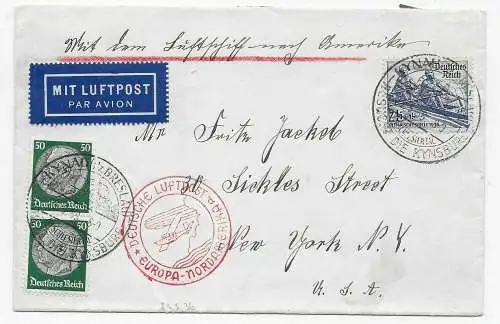 Mit dem Luftschiff nach Amerika
MIT LUFTPOST
PAR AVION
Deutsches
Reich
DIE KYNSBURG
Mr Fritz Jackob
Sickles Street
New York N.Y.
U.S.A.
50 50
Deutsches Reich
50 50
Deutsches Reich
DEUTSCHE LUFTPOST
EUROPA-NORDAMERIKA